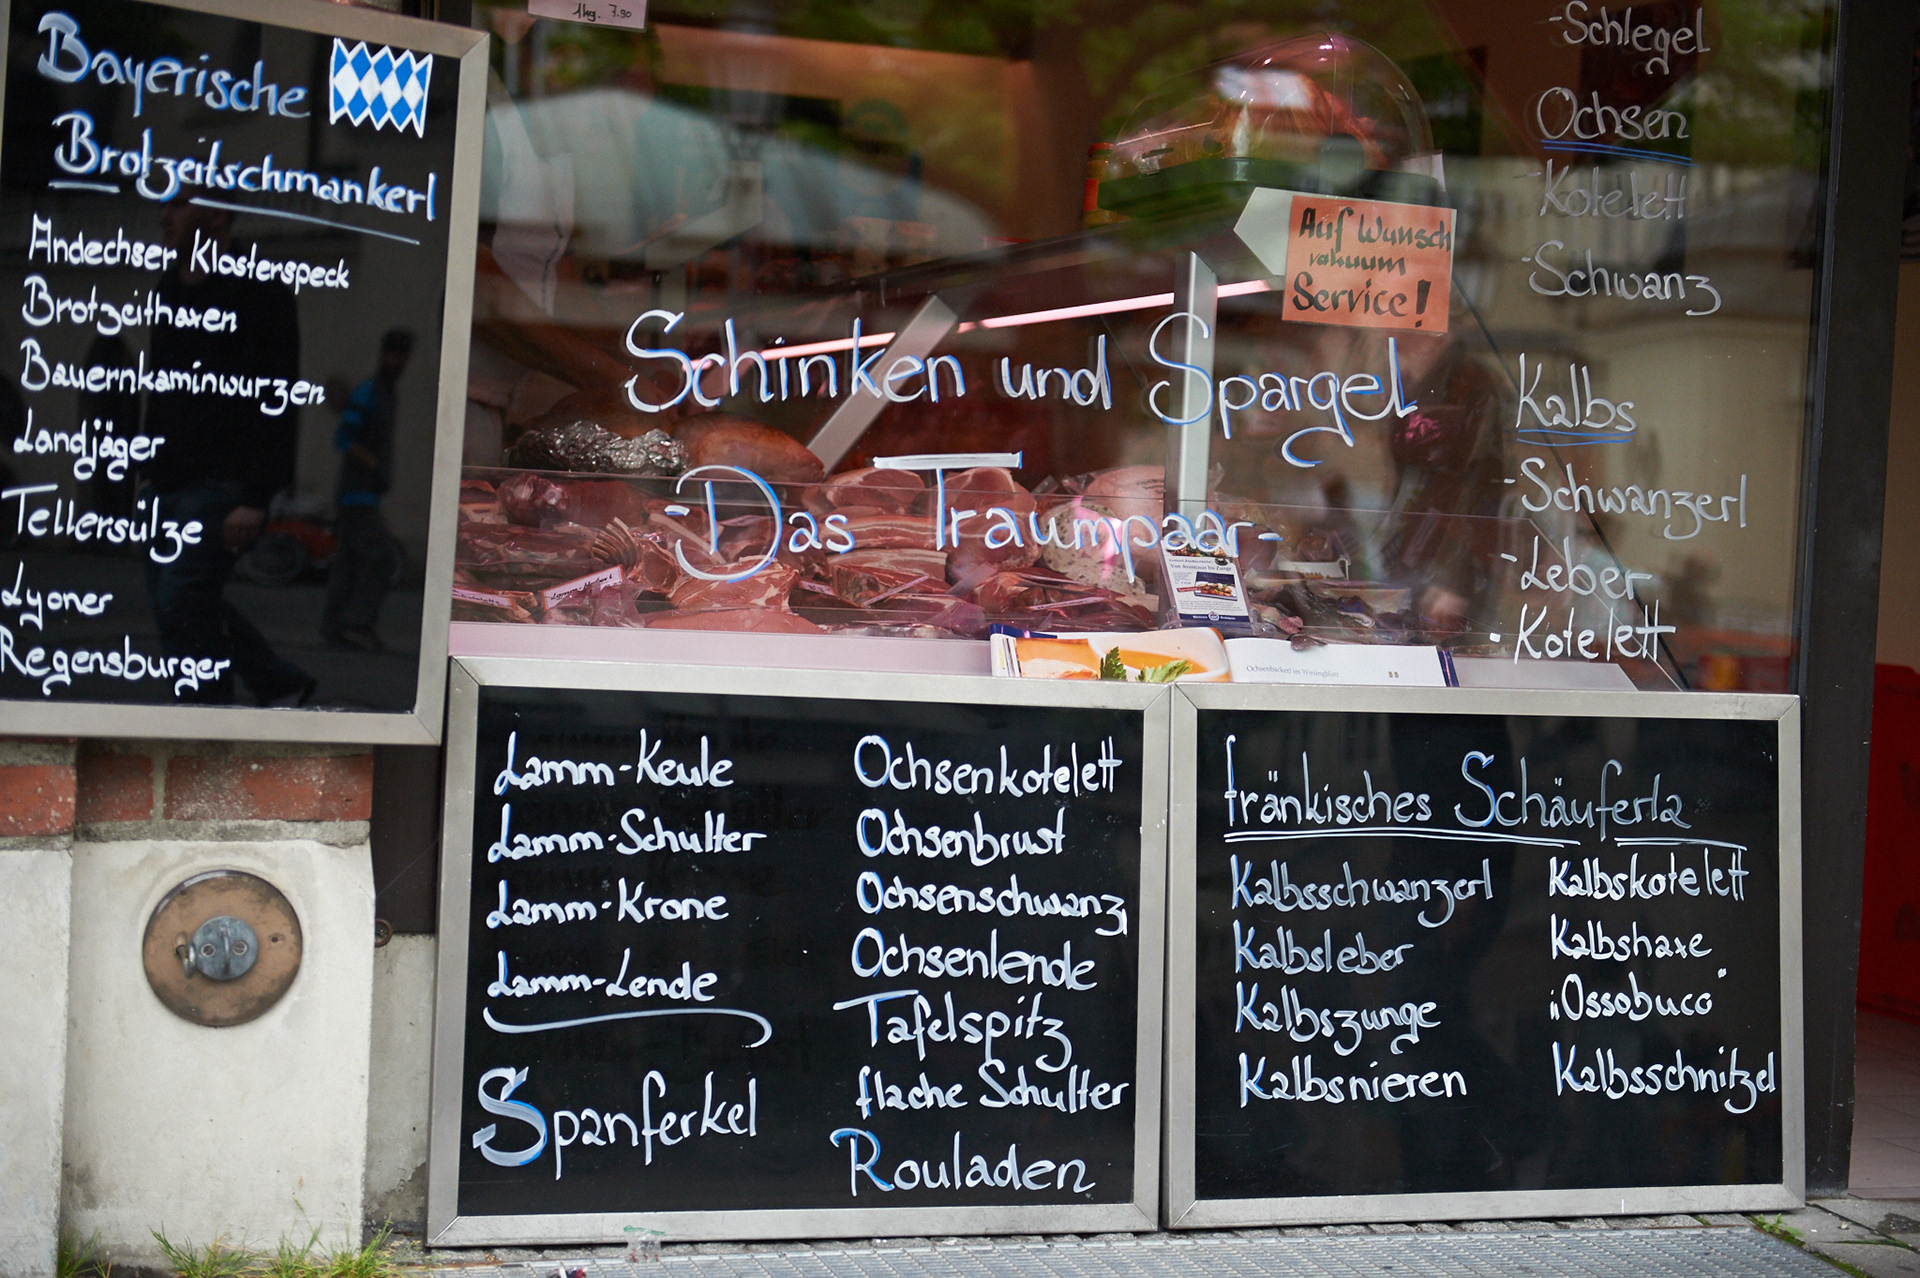 Bayerische
Brotzeitschmankerl
Andechser Klosterspeck
Brotzeithaxen
Bauernkaminwurzen
Landjäger
Tellersülze
Lyoner
Regensburger
1kg. 7.90
Auf Wunsch
vakuum
Service!
Schinken und Spargel
-Das Traumpaar-
-Schlegel
Ochsen
-Kotelett
-Schwanz
Kalbs
-Schwanzerl
-Leber
-Kotelett
Lamm-Keule
Lamm-Schulter
Lamm-Krone
Lamm-Lende
Spanferkel
Ochsenkotelett
Ochsenbrust
Ochsenschwanz
Ochsenlende
Tafelspitz
flache Schulter
Rouladen
fränkisches Schäuferla
Kalbsschwanzerl
Kalbsleber
Kalbszunge
Kalbsnieren
Kalbskotelett
Kalbshaxe
"Ossobuco"
Kalbsschnitzel